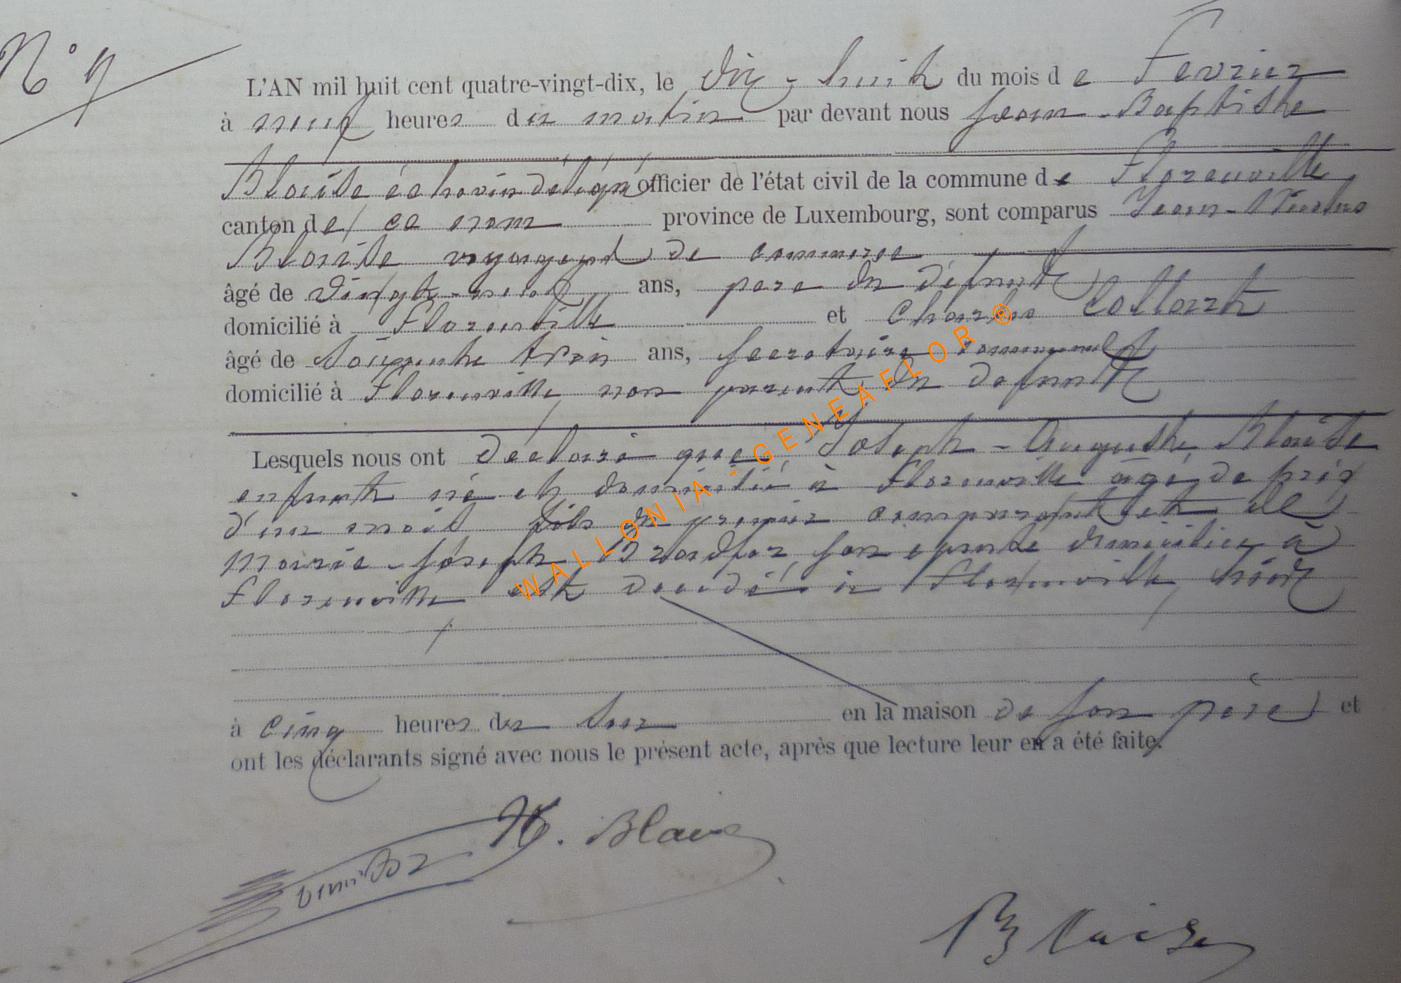 N° 9
L'AN mil huit cent quatre-vingt-dix, le dix-huit du mois de Fevrier
à neuf heures du matin par devant nous Jean-Baptiste
Blaise échevin délégué officier de l'état civil de la commune de Florenville
canton de ce nom province de Luxembourg, sont comparus Jean-Nicolas
Blaise voyageur de commerce
âgé de vingt-neuf ans, père du défunt
domicilié à Florenville et Charles
âgé de soixante trois ans, secrétaire communal
domicilié à Florenville, non parent du defunt
Lesquels nous ont déclaré que Joseph-Auguste Blaise
enfant né et domicilié à Florenville âgé de près
d'un mois fils du premier comparant et de
Marie-Joseph son épouse domiciliée à
Florenville est décédé à Florenville, hier
à cinq heures du soir en la maison de son père et
ont les déclarants signé avec nous le présent acte, après que lecture leur en a été faite.
N. Blaise
Blaise
WALLONIA - GENEAFLOR ®